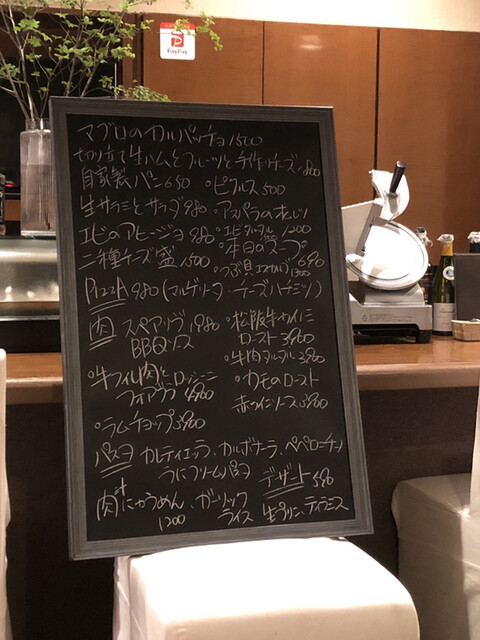 PayPay
マグロのカルパッチョ 1500
切り立て生ハムとフルーツと
自家製パン 650 ・ピクルス 500
生サラミとサラダ 980 ・アスパラの
エビのアヒージョ 980 ・エビタルタル 1200
・本日のスープ 690
二種チーズ盛 1500 ・つぶ貝エスカルゴ 1300
PizzA 980 (マルゲリータ・チーズハチミツ)
肉 スペアリブ 1980 ・松阪牛カイノミ
BBQソース ロースト 3900
・牛肉タルタル
・牛フィレ肉とロッシーニ ・カモのロースト
フォアグラ 4900 赤ワインソース 3900
・ラムチョップ 3900
パスタ カルボナーラ、ペペロンチーノ
うにクリームパスタ
デザート 590
肉にゅうめん、ガーリック 生プリン、ティラミス
1200 ライス